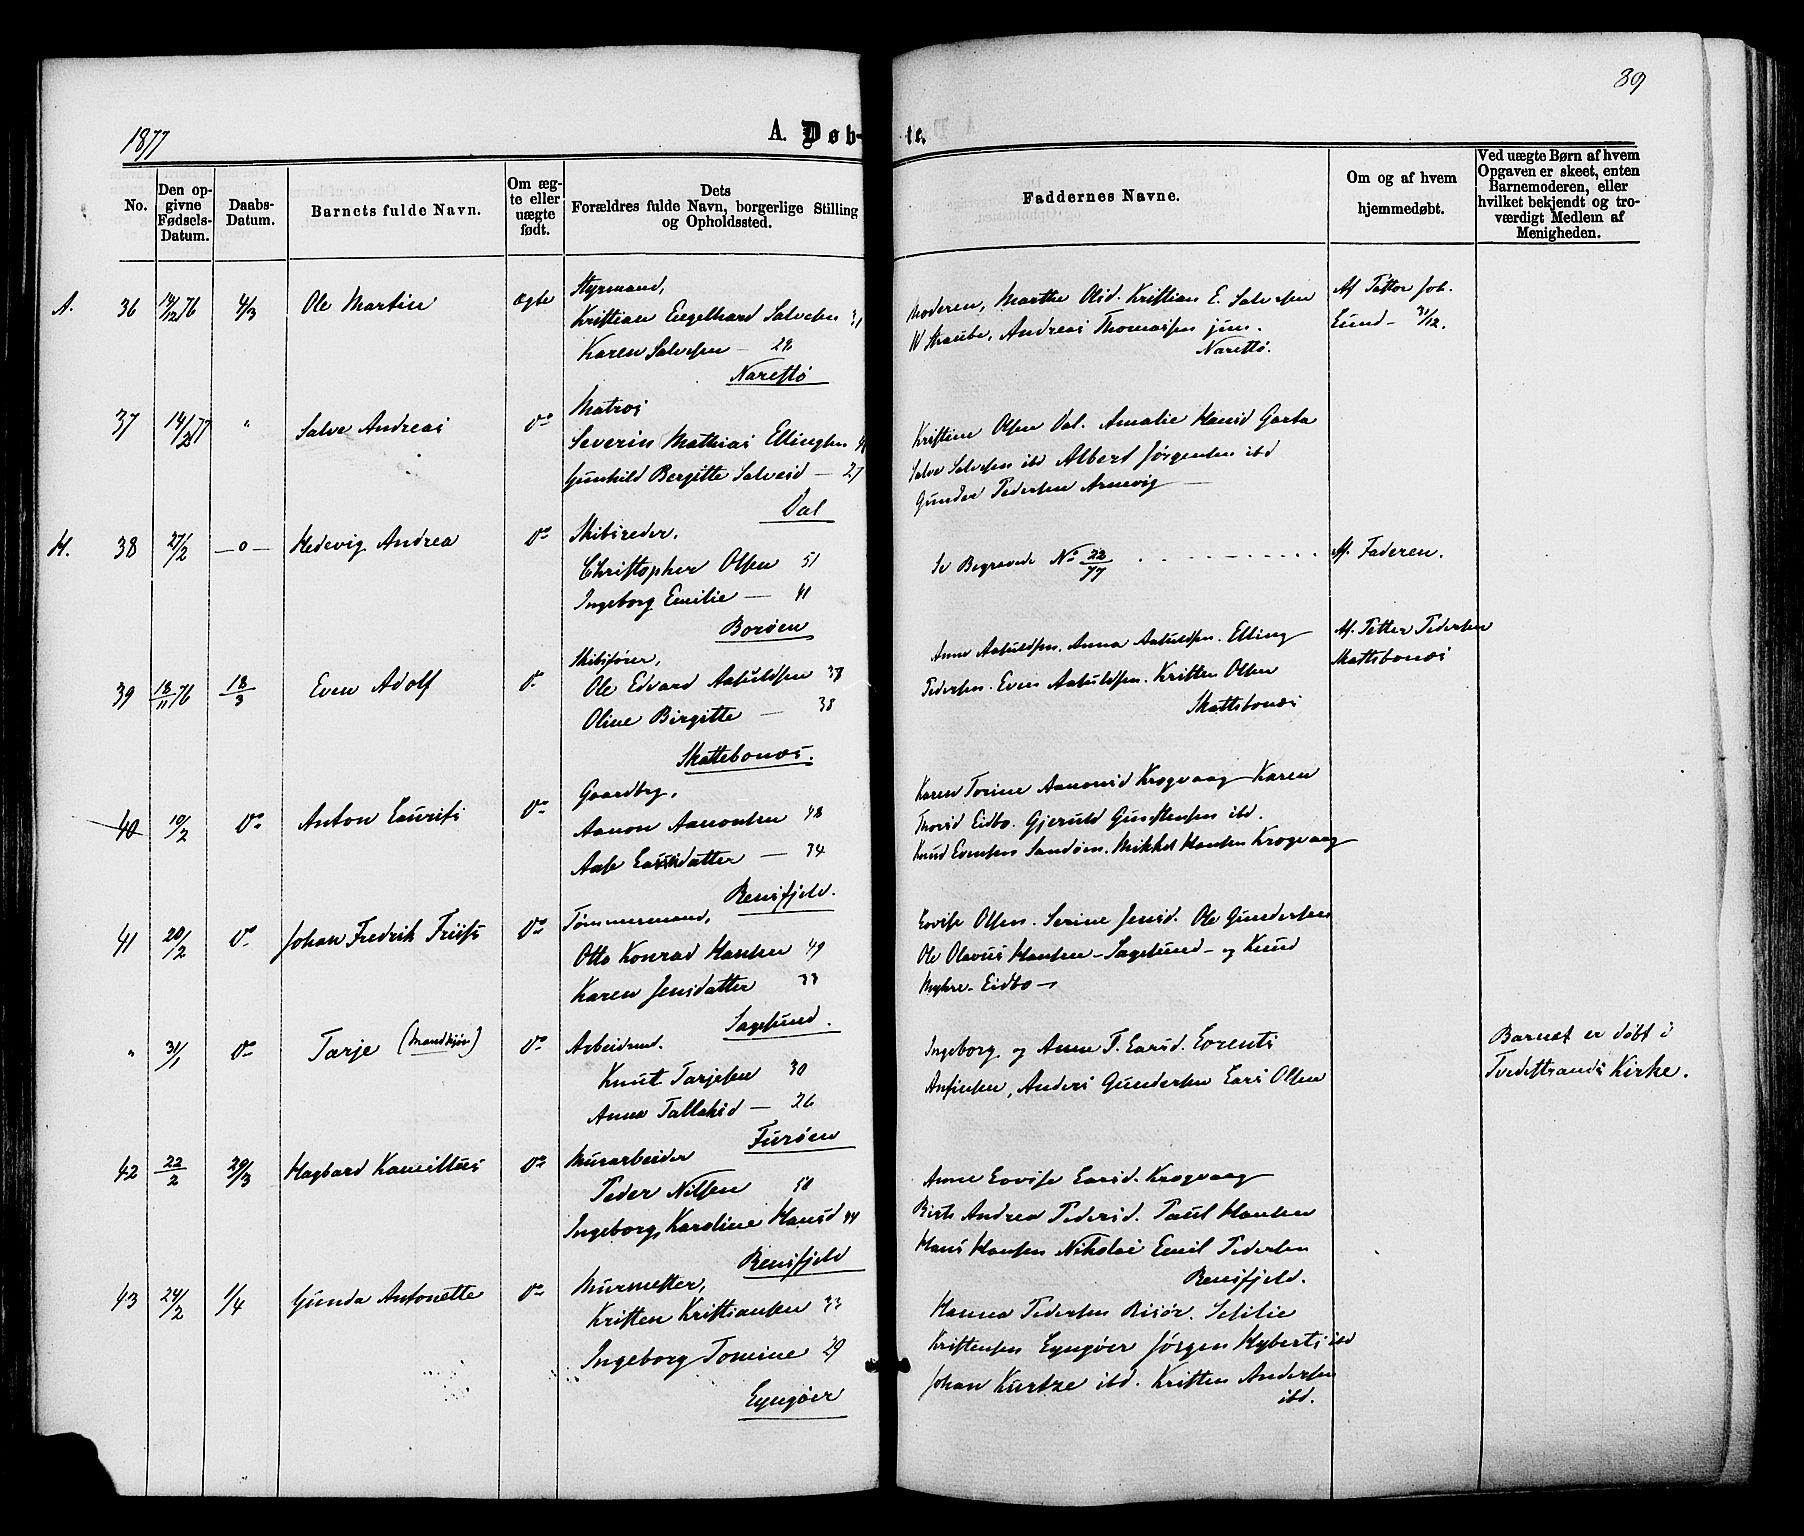 89
1877
A. Døb-
te.
No.
Den op-
givne
Fødsels-
Datum.
Daabs-
Datum.
Barnets fulde Navn.
Om æg-
te eller
uægte
født.
Dets
Forældres fulde Navn, borgerlige Stilling
og Opholdssted.
Faddernes Navne.
Om og af hvem
hjemmedøbt.
Ved uægte Børn af hvem
Opgaven er skeet, enten
Barnemoderen, eller
hvilket bekjendt og tro-
værdigt Medlem af
Menigheden.
A. 36 14/12 76 4/3 Ole Martin ægte
Styrmand,
Kristian Engelhard Salvesen 31
Karen Salvesen — 28
Narestø
Moderen, Marthe Olsd. Kristian E. Salvesen
W Straube, Andreas Thomassen jun.
Narestø.
Af Petter Job.
Lund — 31/12.
37 14/2 77 " Salve Andreas Do
Matros
Severin Mathias Ellingsen
Gunhild Bergitte Salvesd — 27
Dal
Kristine Olsen Dal. Amalie Hansd Garta
Salve Salvesen ibd Albert Jørgensen ibd
Gunder Pedersen Arnevig —
H. 38 27/2 —o— Hedevig Andrea Do
Skibsreder,
Christopher Olsen 51
Ingeborg Emilie — 41
Borøen
Se Begravede No 22/77
Af Faderen.
39 18/11 76 18/3 Even Adolf Do
Skibsfører,
Ole Edvard Aasuldsen 38
Oline Birgitte — 38
Skattebonæs.
Anne Aasuldsen. Anna Aasuldsen. Elling
Pedersen. Even Aasuldsen. Kristen Olsen
Skattebonæs
Af Petter Pedersen
Skattebonæs
40 10/2 Do Anton Laurits Do
Gaardbrg,
Aanon Aanonsen 48
Aase Larsdatter — 34
Rensfjeld.
Karen Torine Aanonsd Krogvaag Karen
Thorsd Eidbo. Gjeruld Gunstensen ibd.
Knud Evensen Sandøen. Mikkel Hansen Krogvaag
41 20/2 Do Johan Fredrik Friis Do
Tømmermand,
Otto Konrad Hansen 49
Karen Jensdatter 33
Sagesund.
Lovise Olsen. Serine Jensd. Ole Gundersen
Ole Olavus Hansen — Sagesund — og Knud
Myhre — Eidbo —
" 31/1 Do Tarje (Mandkjøn) Do
Arbeidsmd.
Knut Tarjesen 30
Anne Tallaksd — 26
Furøen
Ingeborg og Anne T. Larsd. Lorents
Anfinsen, Anders Gundersen Lars Olsen
Barnet er døbt i
Tvedestrands Kirke.
42 22/2 29/3 Hagbard Kamillus Do
Murarbeider
Peder Nilsen 50
Ingeborg Karoline Hansd 44
Rensfjeld
Anne Lovise Larsd. Krogvaag
Birte Andrea Pedersd. Paul Hansen
Hans Hansen Nikolai Emil Pedersen
Rensfjeld.
43 24/2 1/4 Gunda Antonette Do
Murmester,
Kristen Kristiansen 33
Ingeborg Tomine 29
Lyngøer
Hanna Pedersen Risør. Sesilie
Kristensen Lyngøer Jørgen Hyberts ibd
Johan Kurtze ibd. Kristen Andersen
ibd.